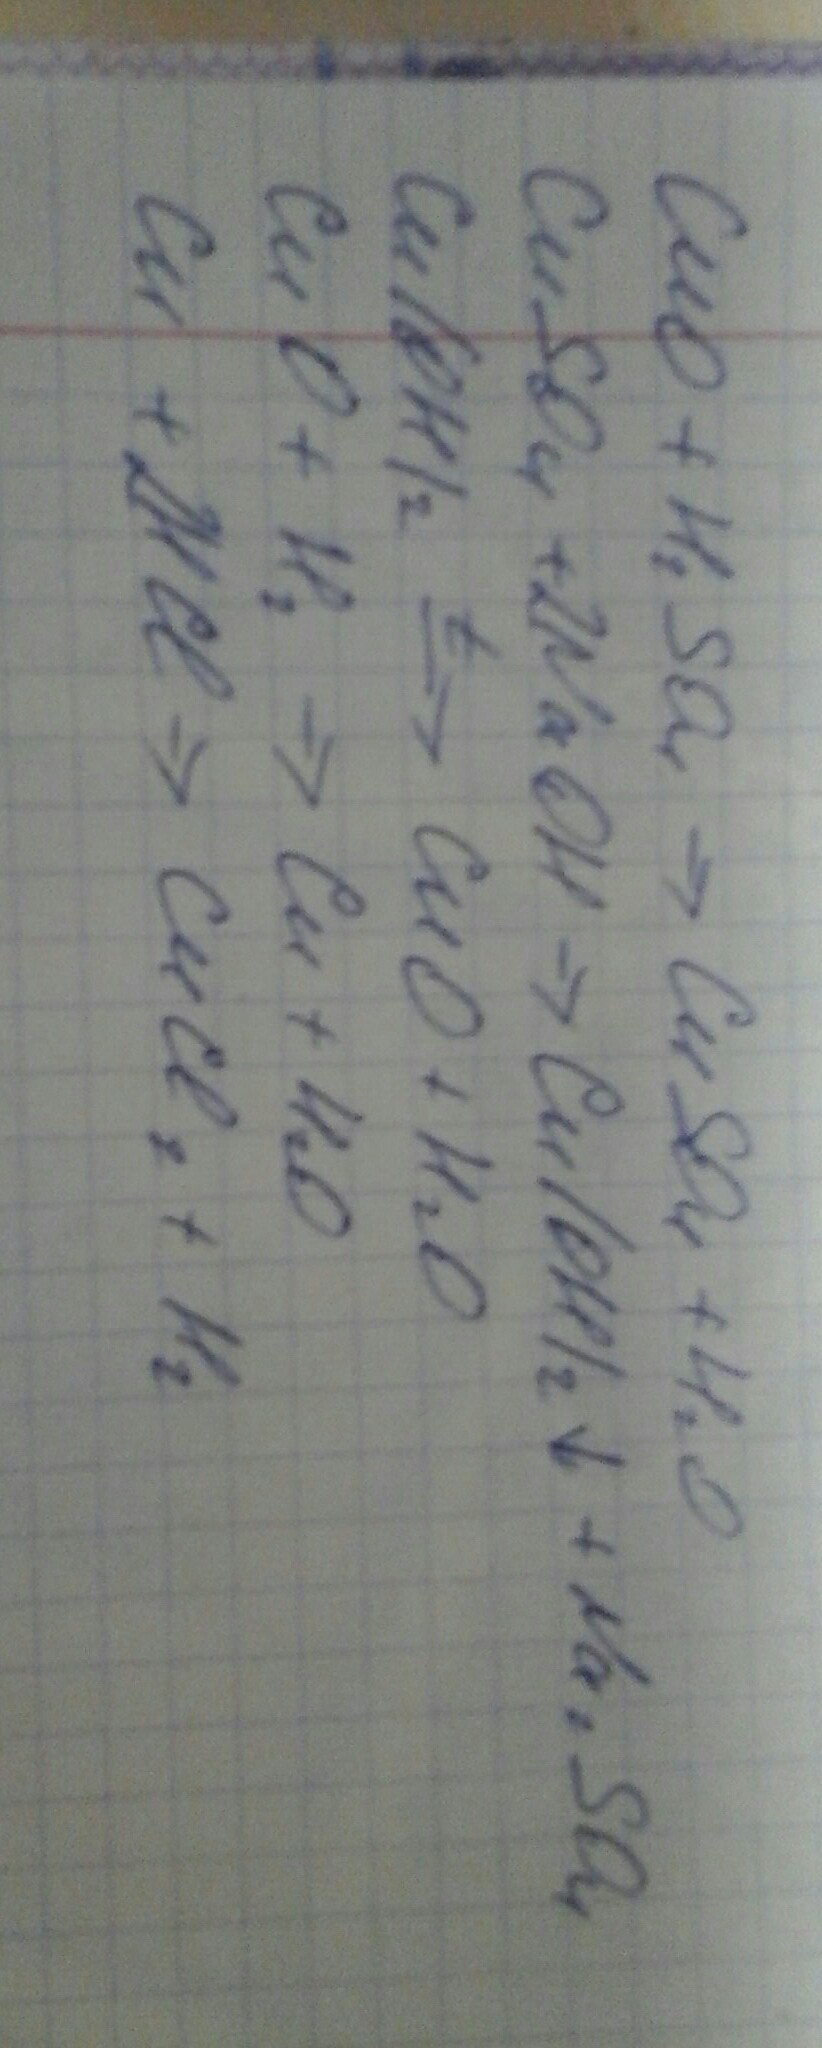 CuO + H₂SO₄ → CuSO₄ + H₂O
CuSO₄ + 2NaOH → Cu(OH)₂ ↓ + Na₂SO₄
Cu(OH)₂ t→ CuO + H₂O
CuO + H₂ → Cu + H₂O
Cu + 2HCl → CuCl₂ + H₂